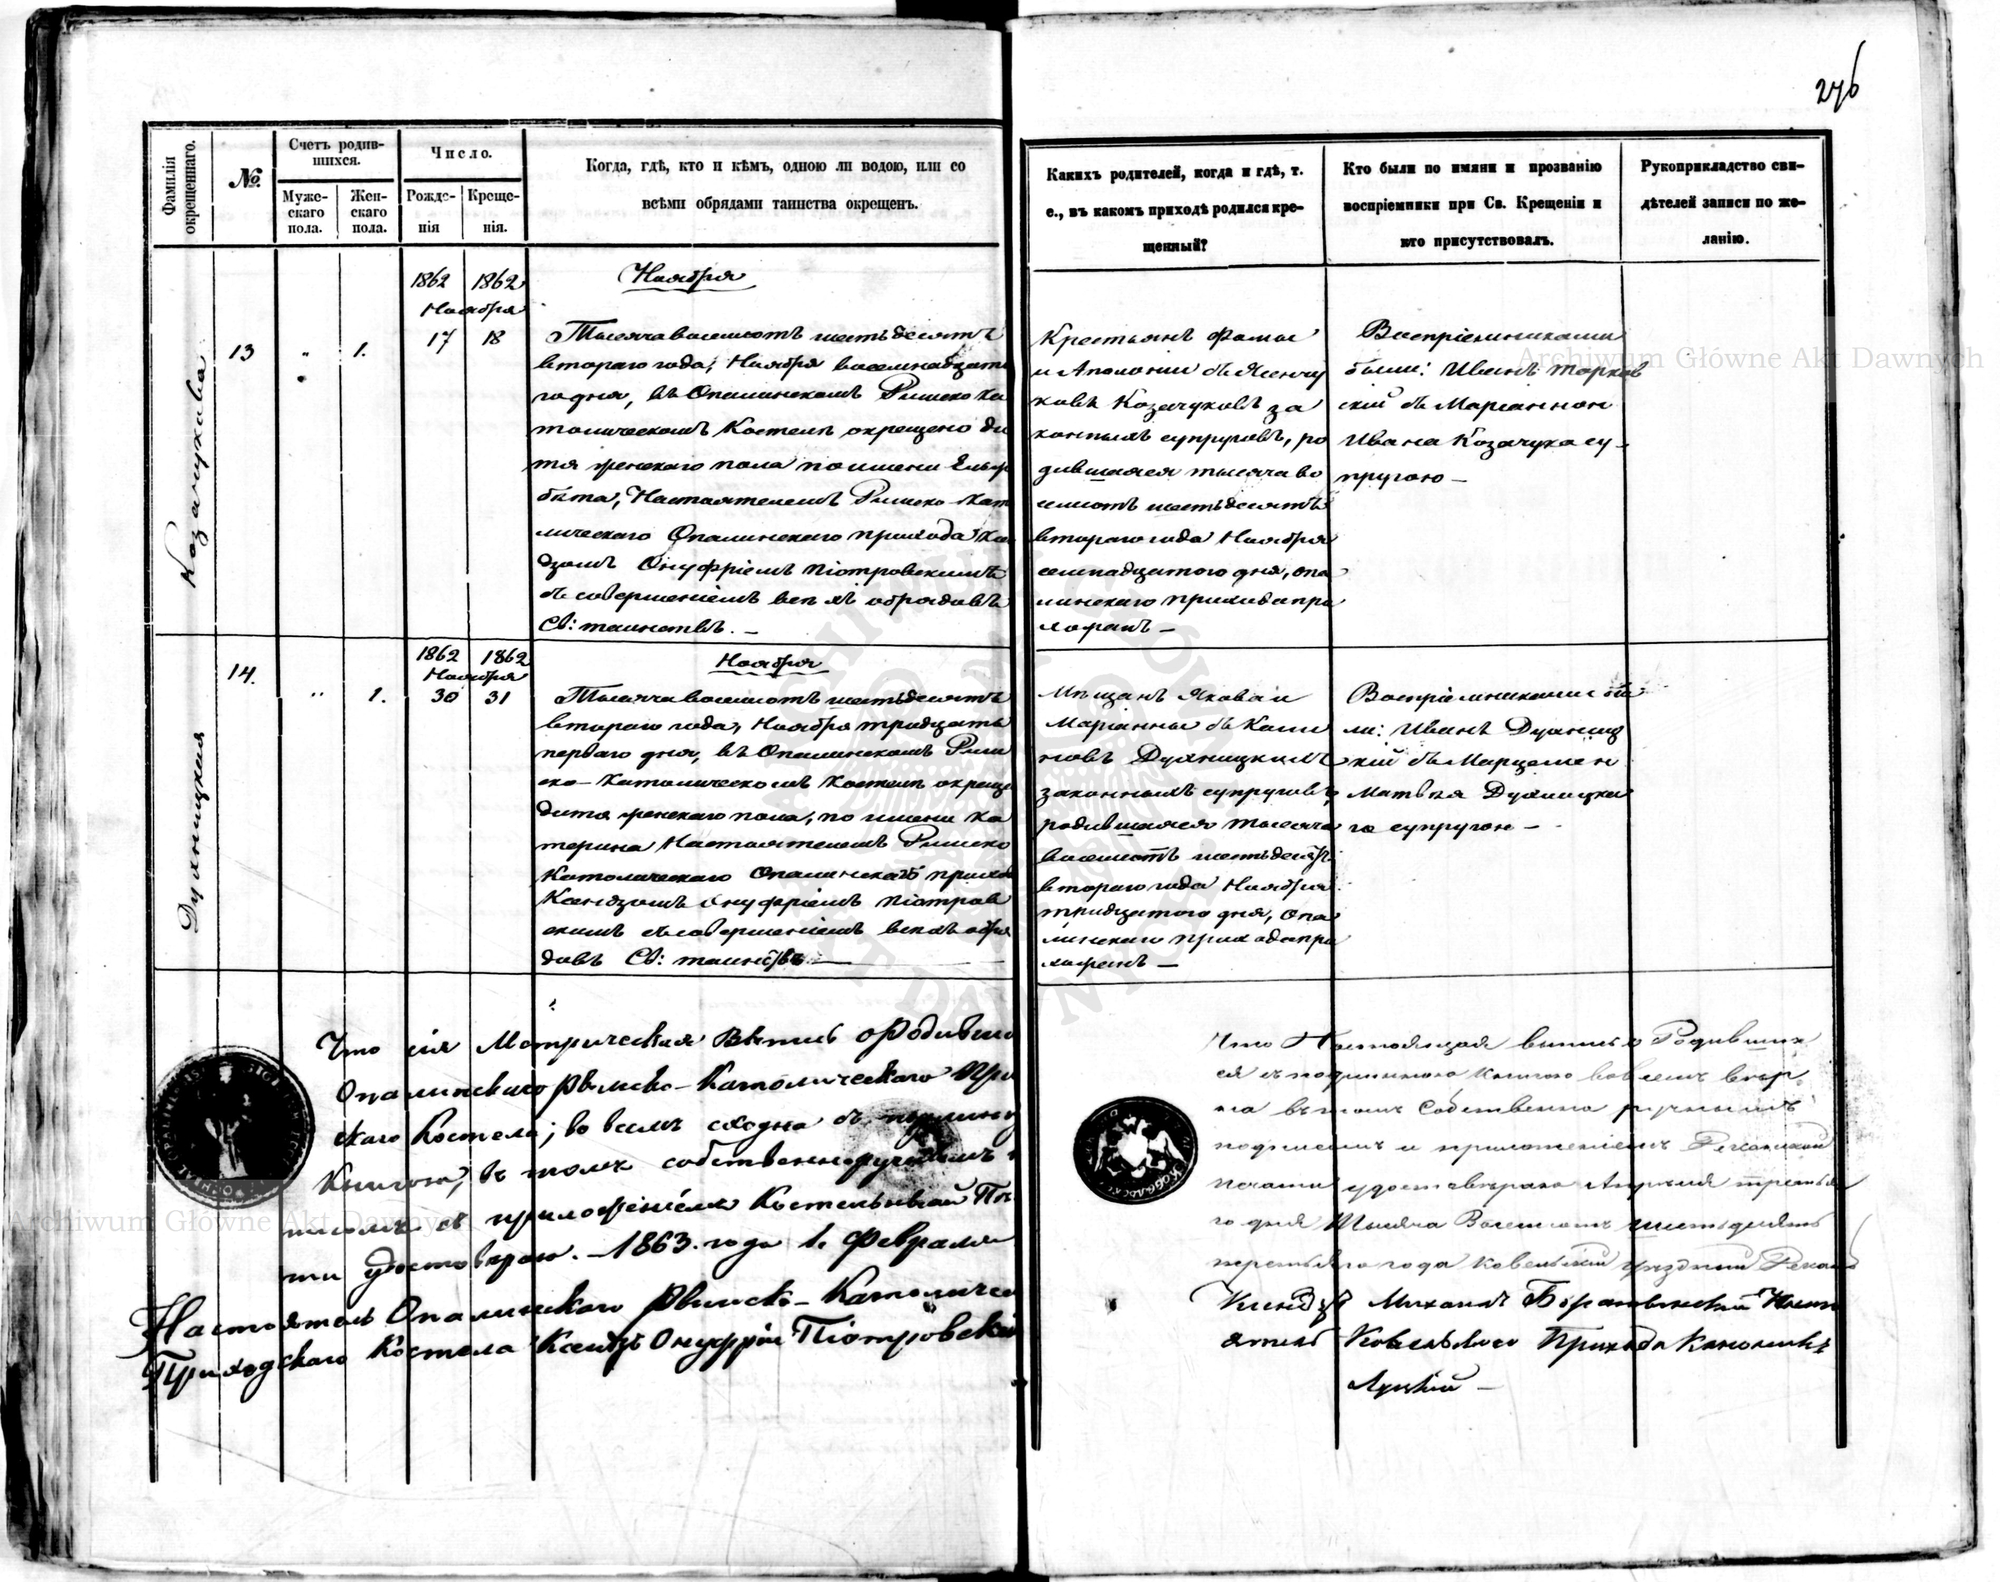 276
Фамилія окрещеннаго.
№.
Счетъ родив-
шихся.
Муже-
скаго
пола.
Жен-
скаго
пола.
Число.
Рожде-
нія
Креще-
нія.
Когда, гдѣ, кто и кѣмъ, одною ли водою, или со
всѣми обрядами таинства окрещенъ.
Какихъ родителей, когда и гдѣ, т.
е., въ какомъ приходѣ родился кре-
щенный?
Кто были по имяни и прозванію
воспріемники при Св. Крещеніи и
кто присутствовалъ.
Рукоприкладство сви-
дѣтелей записи по же-
ланію.
Козачукова
13
„
1.
1862 1862
Ноября
17 18
Ноября
Тысяча восемсотъ шестьдесятъ
втораго года, Ноября восемнадцата
го дня, въ Опалинскомъ Римско Ка
толическомъ Костелѣ окрещено ди
тя женскаго пола по имени Ельж
бѣта, Настоятелемъ Римско-Кат
лическаго Опалинскаго прихода Кс
дзомъ Онуфріемъ Піотровскимъ
съ совершеніемъ всѣхъ обрядовъ
Св: таинствъ. —
Крестьянъ Фомы
и Аполоніи съ Ясенчу
ковъ Козачуковъ за
конныхъ супруговъ, ро
дившаяся тысяча во
семсотъ шестьдесятъ
втораго года Ноября
семнадцатого дня, опа
линскаго прихода пра
хофіанъ —
Воспріемниками
были: Иванъ Торков
скій съ Маріанною
Ивана Козачука су-
пругою —
Дужницкая
14.
„
1.
1862 1862
Ноября
30 31
Ноября
Тысяча восемсотъ шестьдесятъ
втораго года, Ноября тридцать
перваго дня, въ Опалинскомъ Рим
ско-Католическомъ Костелѣ окреще
дитя женскаго пола, по имени Ка
терина Настоятелемъ Римско
Католическаго Опалинскаго прихода
Ксендзомъ Онуфріемъ Піотров
скимъ съ совершеніемъ всѣхъ обря
довъ Св: таинствъ —
Мѣщанъ Якова и
Маріанны съ
Дужницкихъ
законныхъ супруговъ,
родившаяся тысяча
восемсотъ шестьдесятъ
втораго года Ноября
тридцатого дня, Опа
линскаго прихода пра
хофіанъ —
Воспріемниками бы
ли: Иванъ Дужниц
кій съ
Матвѣя Дужницка
го супругою —
Что сія Метрическая Выпись о Родивши
Опалинскаго Римско-Католическаго При
скаго Костела; во всемъ сходна съ подлинно
Книгою, въ томъ собственноручнымъ
писомъ съ приложеніемъ Костельной Пе
ти удостовѣряю. — 1863. года 1. Февраля
Настоятель Опалинскаго Римско-Католичес
Приходскаго Костела Ксендзъ Онуфрій Піотровскій
Что Настоящая выпись о Родивших
ся съ подлинною книгою во всемъ вѣр
на въ томъ собственно ручнымъ
подписомъ и приложеніемъ Деканской
печати удостовѣряю Апрѣля третья
го дня Тысяча Восемсотъ шестьдесятъ
третьяго года Ковельскій уѣздный Декан
Ксендзъ Михаилъ Насто
ятель Ковельскаго Прихода Каноникъ
Луцкій —
Archiwum Główne Akt Dawnych
Archiwum Główne Akt Dawnych